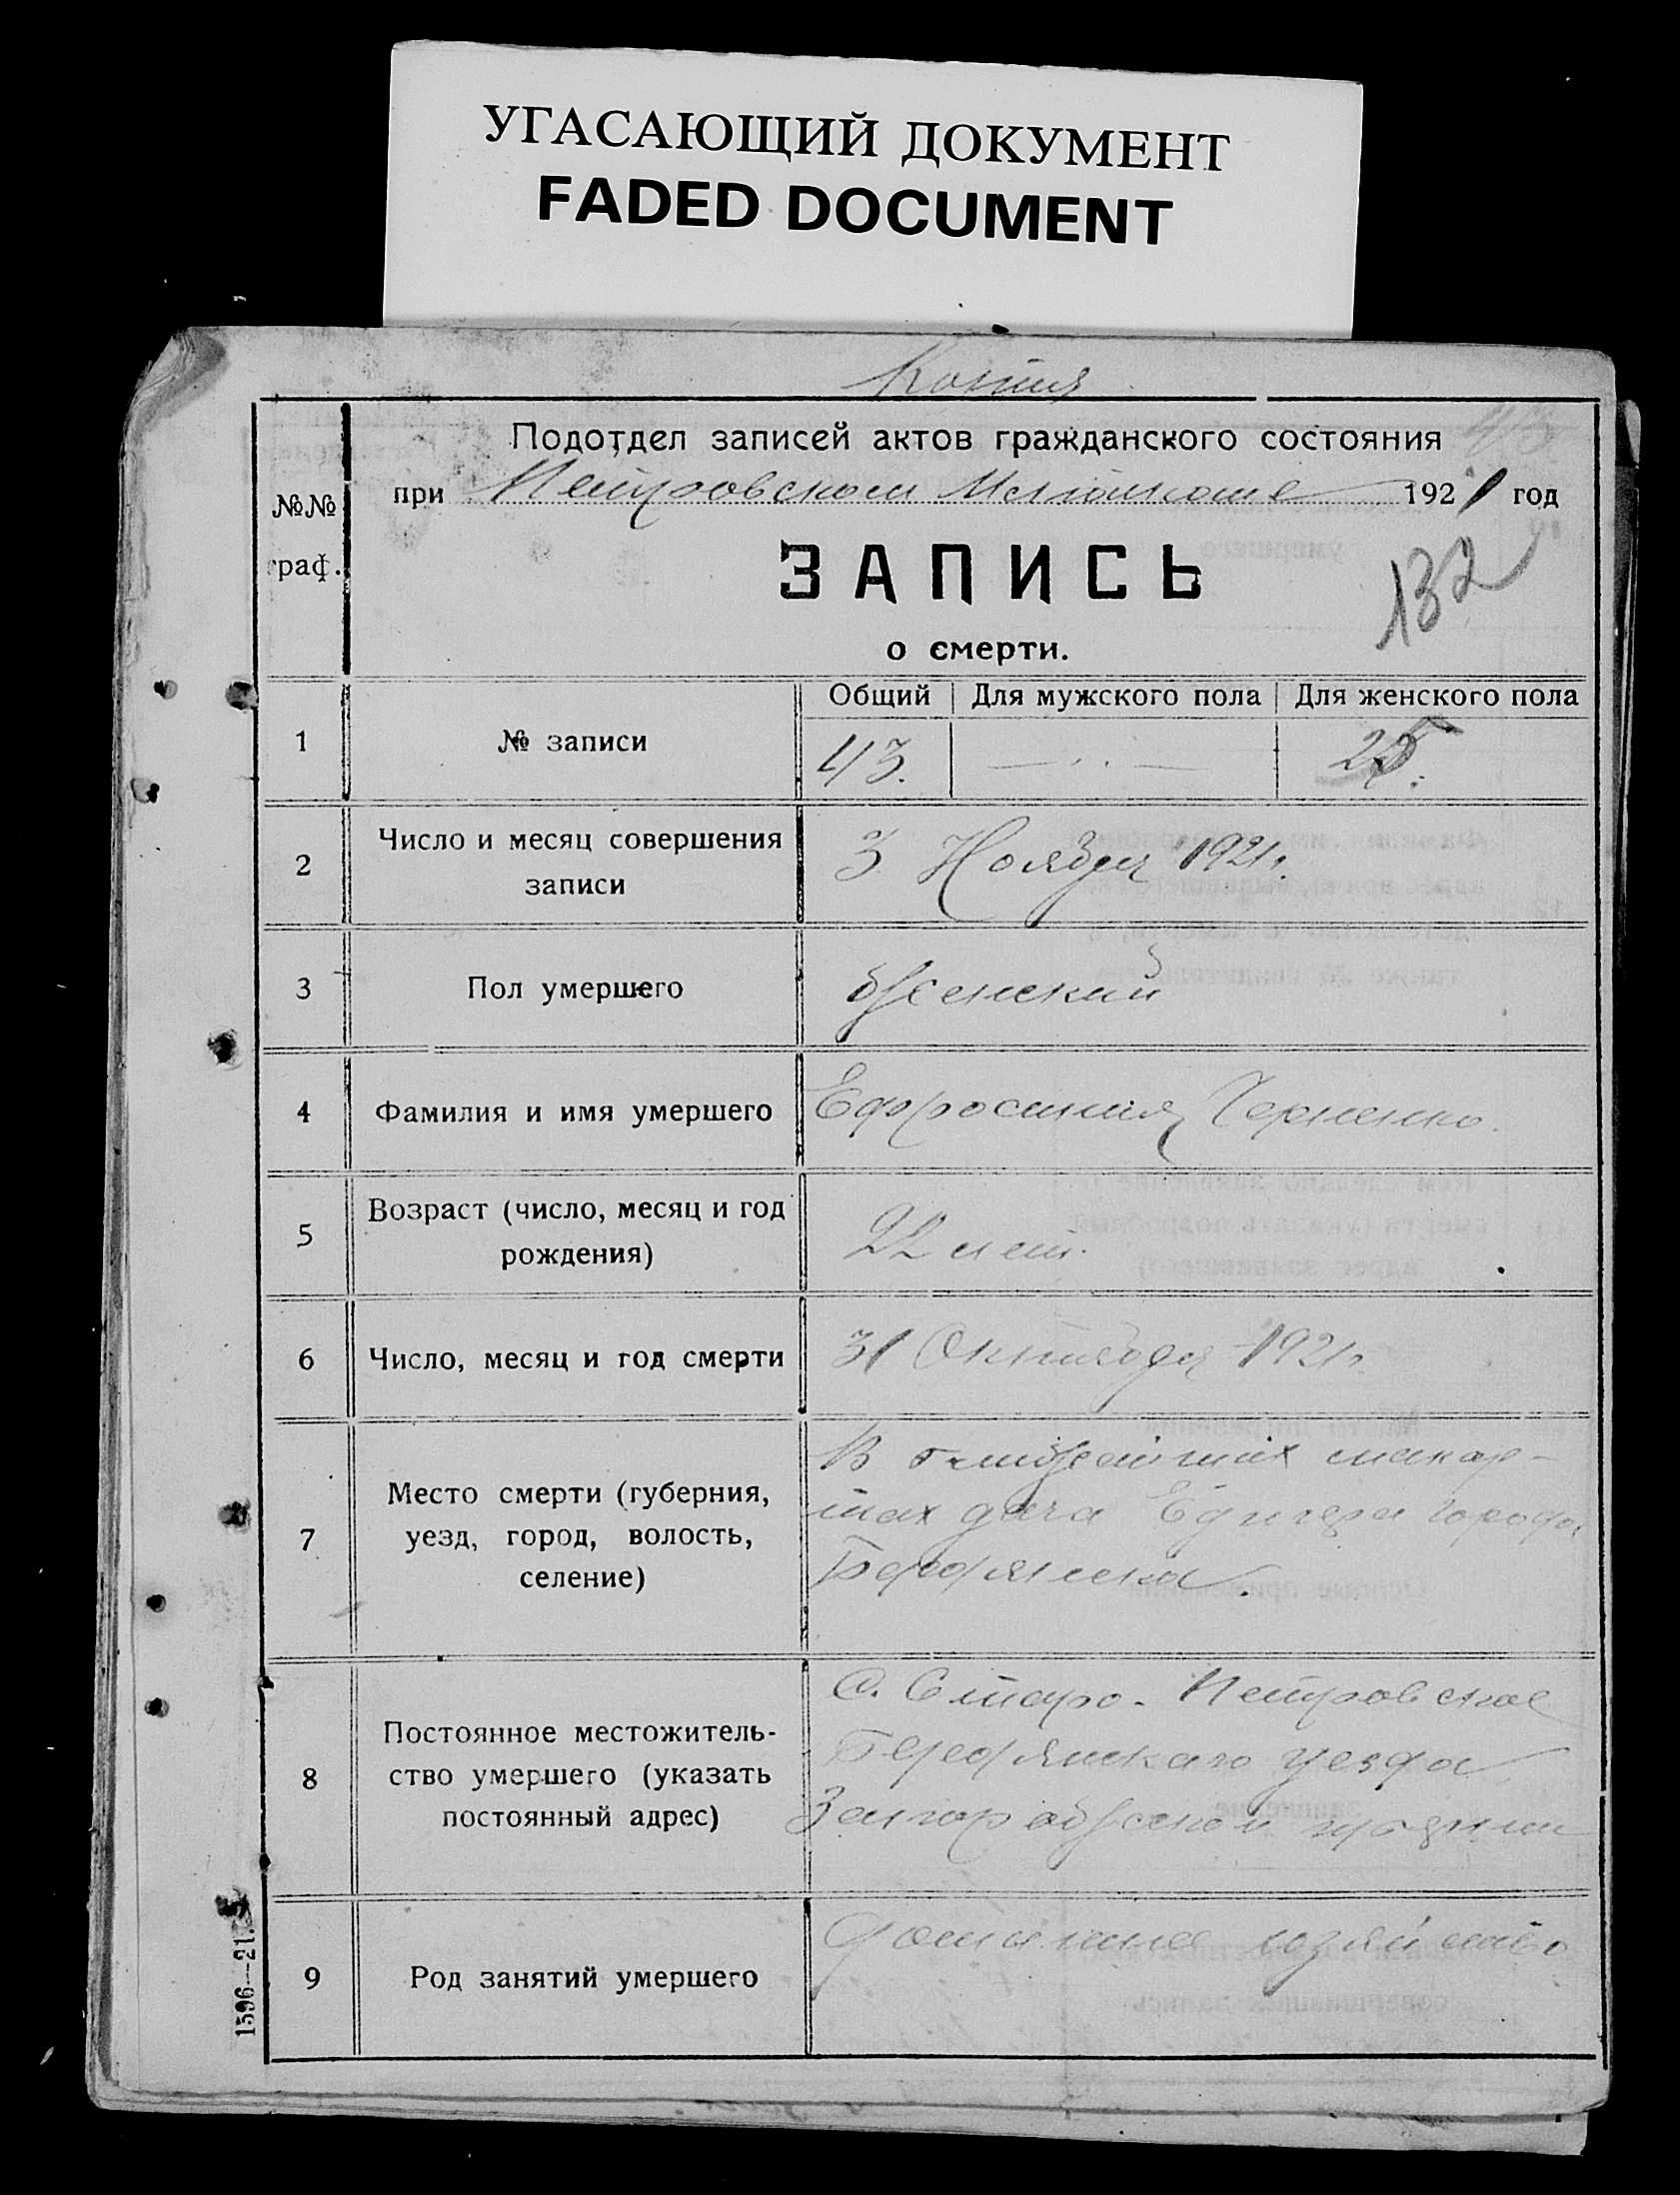 УГАСАЮЩИЙ ДОКУМЕНТ
FADED DOCUMENT
Копия
Подотдел записей актов гражданского состояния
при Петровском Исполкоме 1921 год
№№
граф.
ЗАПИСЬ
132
о смерти.
Общий Для мужского пола Для женского пола
1 № записи 43. — . . — 25.
2 Число и месяц совершения
записи
3 Ноября 1921г.
3 Пол умершего Женский
4 Фамилия и имя умершего Ефросиния Черненко.
5 Возраст (число, месяц и год
рождения)
22 лет.
6 Число, месяц и год смерти 31 Октября 1921г.
7 Место смерти (губерния,
уезд, город, волость,
селение)
В
тах дача города
Бердянска.
8 Постоянное местожитель-
ство умершего (указать
постоянный адрес)
С. Старо-Петровское
Бердянскаго уезда
Запорожской губернии
9 Род занятий умершего
домашнее хозяйство
1596—21.